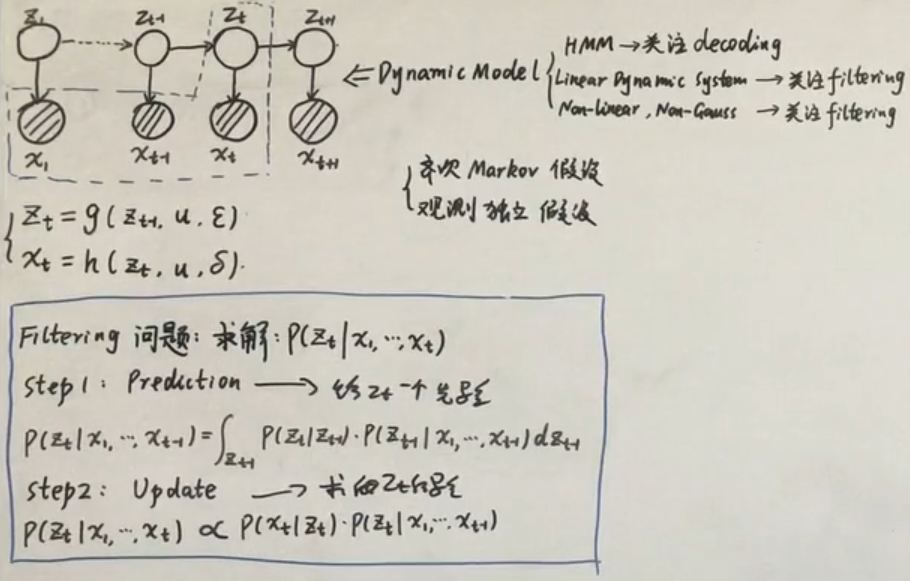 z₁ z_{t-1} z_t z_{t+1}
x₁ x_{t-1} x_t x_{t+1}
⇐ Dynamic Model
HMM → 关注 decoding
Linear Dynamic System → 关注 filtering
Non-linear, Non-Gauss → 关注 filtering
齐次 Markov 假设
观测独立 假设
z_t = g(z_{t-1}, u, ε)
x_t = h(z_t, u, δ).
Filtering 问题: 求解: P(z_t|x₁, ⋯, x_t)
Step1: Prediction → 给 z_t 一个先验
P(z_t|x₁, ⋯, x_{t-1}) = ∫_{z_{t-1}} P(z_t|z_{t-1}) · P(z_{t-1}|x₁, ⋯, x_{t-1}) dz_{t-1}
Step2: Update → 求 z_t
P(z_t|x₁, ⋯, x_t) ∝ P(x_t|z_t) · P(z_t|x₁, ⋯, x_{t-1})